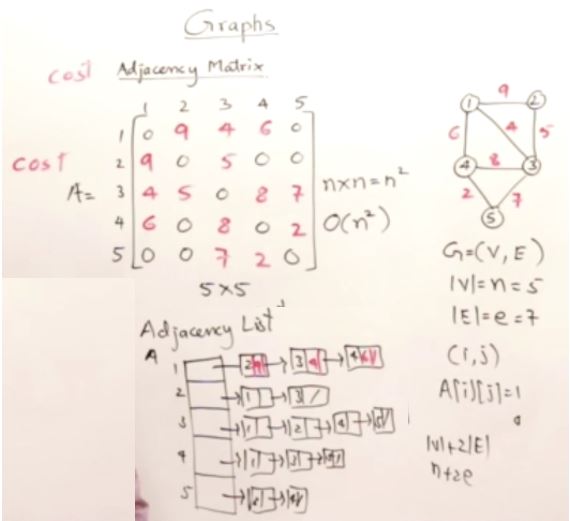 Graphs
cost Adjacency Matrix
1 2 3 4 5
1 0 9 4 6 0
cost 2 9 0 5 0 0
A= 3 4 5 0 8 7
4 6 0 8 0 2
5 0 0 7 2 0
5×5
n×n=n²
O(n²)
1 9 2
6 4 5
4 8 3
2 7
5
G=(V, E)
|V|=n=5
|E|=e=7
(i,j)
A[i][j]=1
0
|V|+2|E|
n+2e
Adjacency List
A
1 2 9 3 4 4 6 /
2 1 3 /
3 1 2 4 5 /
4 1 3 5 /
5